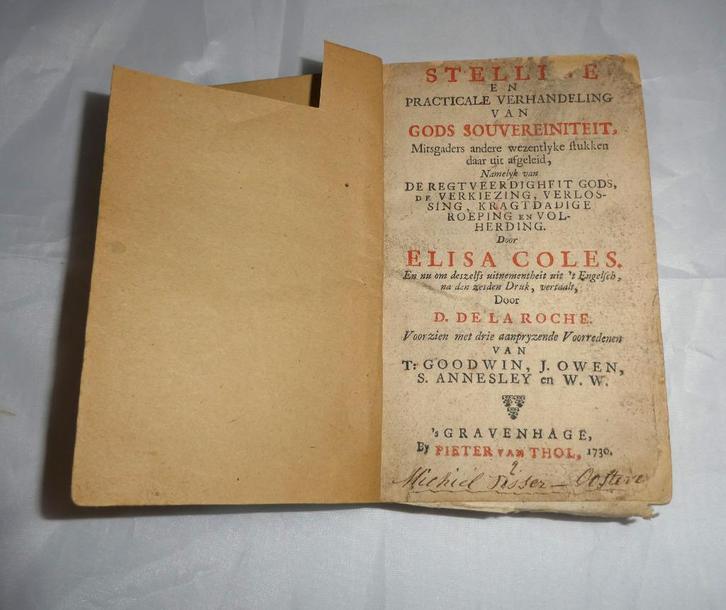 STELLI E
EN
PRACTICALE VERHANDELING
VAN
GODS SOUVEREINITEIT,
Mitsgaders andere wezentlyke stukken
daar uit afgeleid,
Namelyk van
DE REGTVEERDIGHEIT GODS,
DE VERKIEZING, VERLOS-
SING, KRAGTDADIGE
ROEPING EN VOL-
HERDING.
Door
ELISA COLES.
En nu om deszelfs uitnementheit uit 't Engelsch,
na den zesden Druk, vertaalt,
Door
D. DE LA ROCHE.
Voorzien met drie aanpryzende Voorredenen
VAN
T: GOODWIN, J. OWEN,
S. ANNESLEY en W. W.
's GRAVENHAGE,
By PIETER VAN THOL, 1730.
Michiel